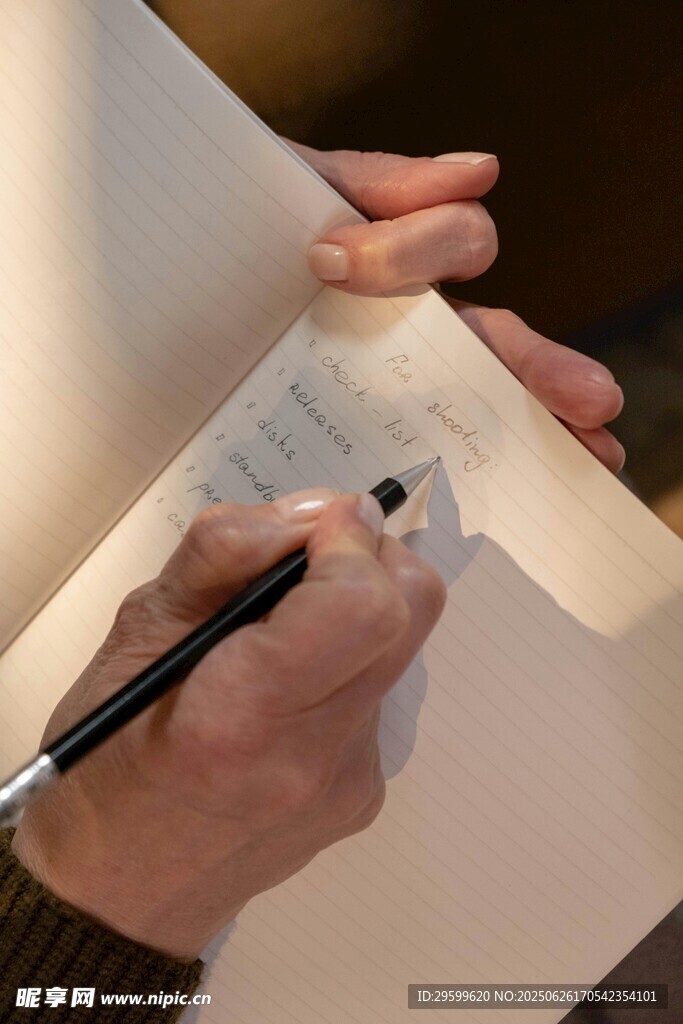 For shooting:
▯ check-list
▯ releases
▯ disks
▯ standb
▯ pre
▯ ca
昵享网 www.nipic.cn
ID:29599620 NO:20250626170542354101